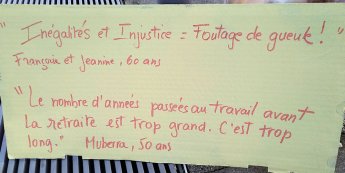 "Inégalités et Injustice = Foutage de gueule ! "
Françoise et Jeanne, 60 ans
"Le nombre d'années passées au travail avant
La retraite est trop grand. C'est trop
long." Muberra, 50 ans